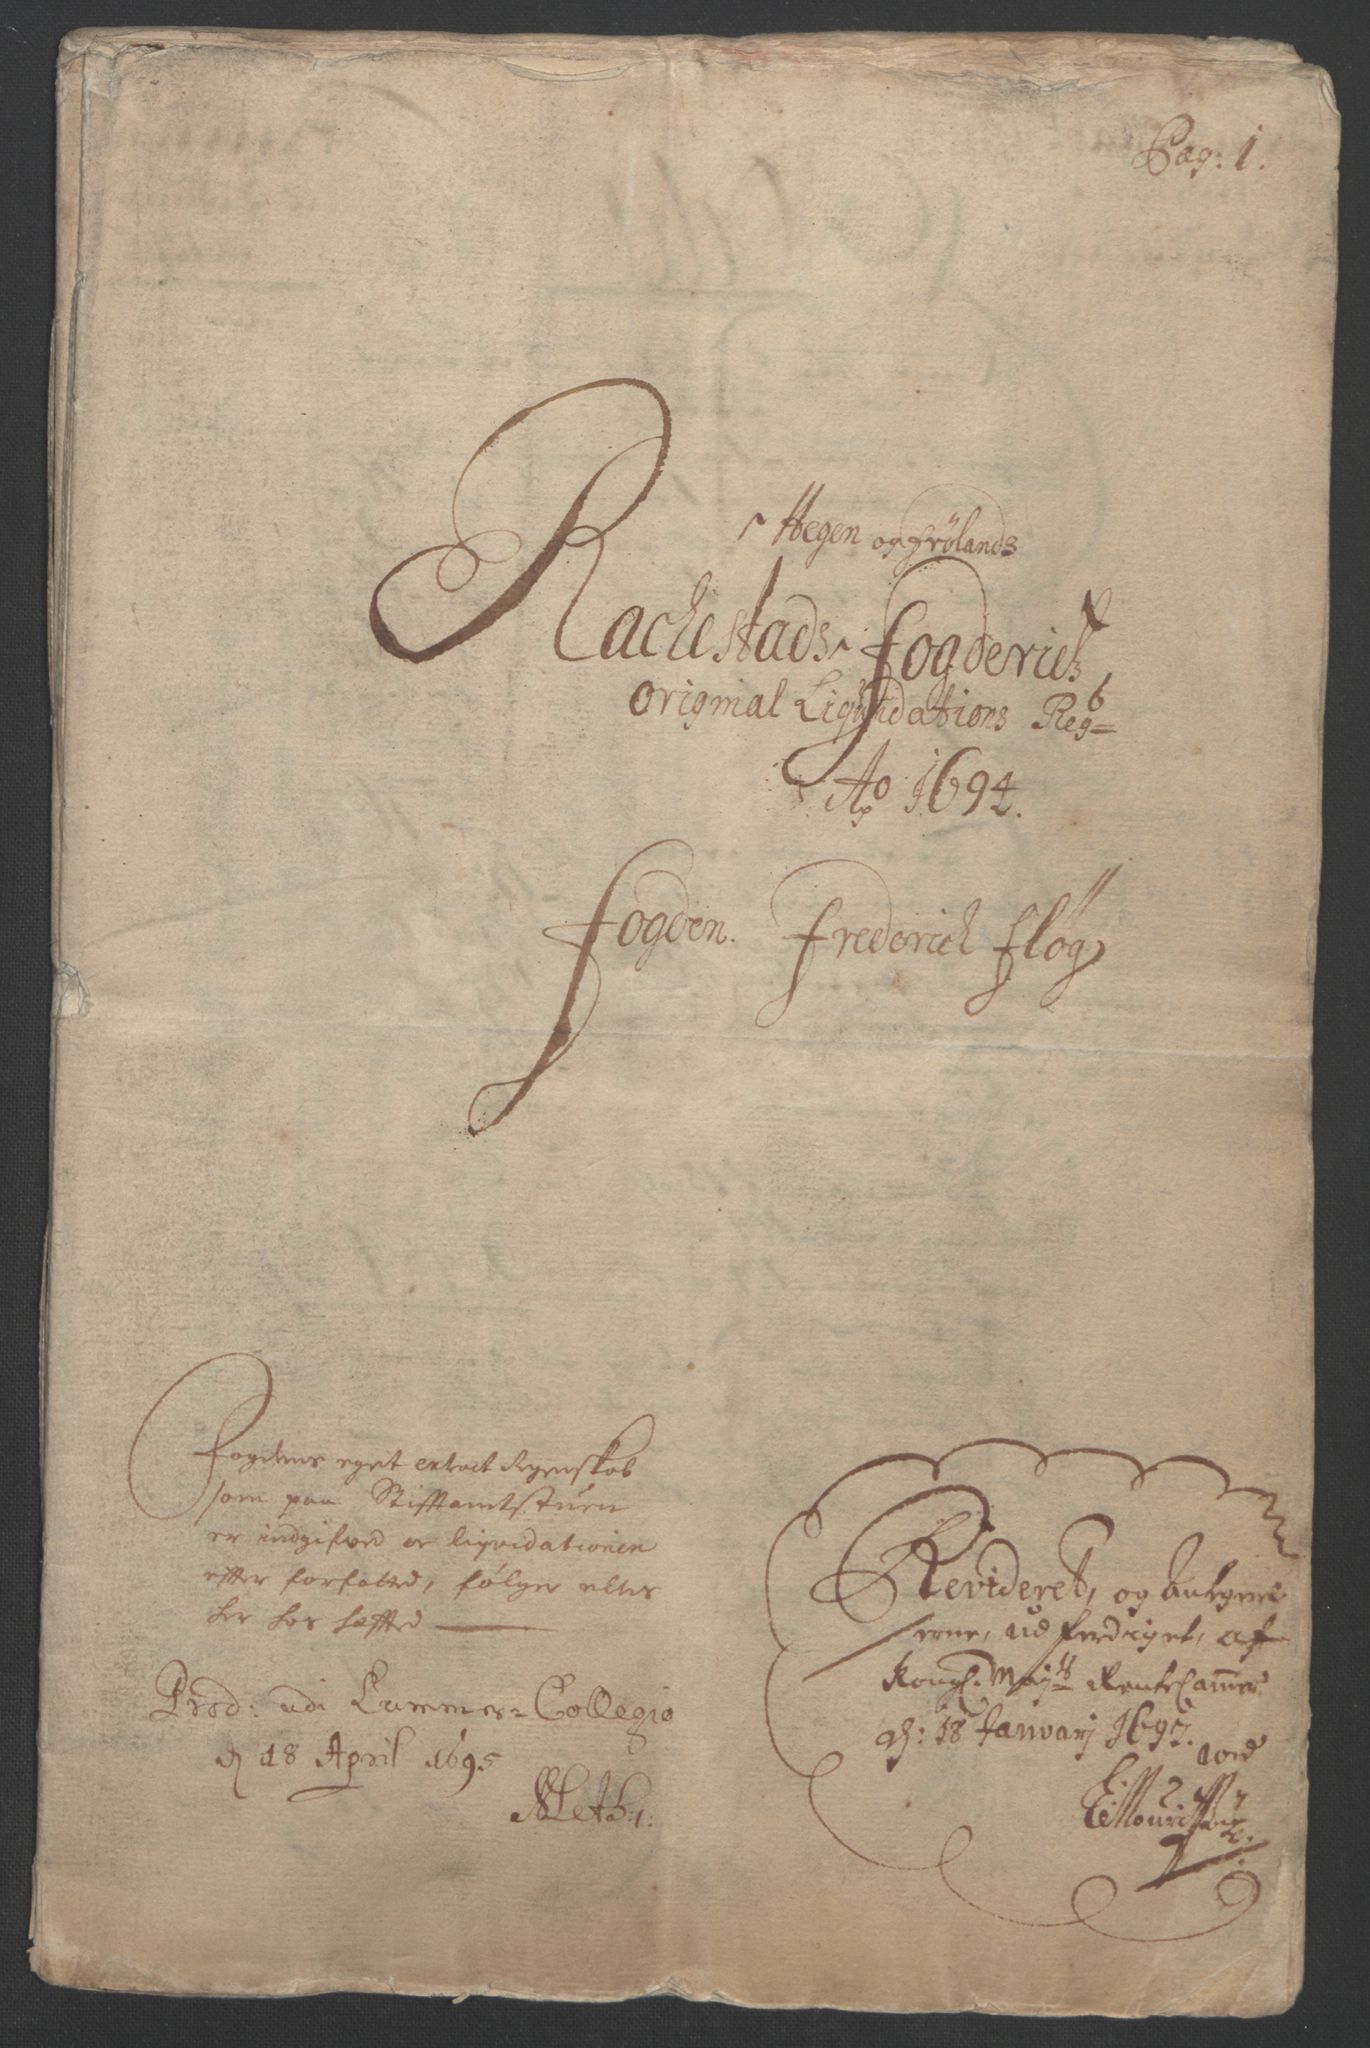 Pag: 1.
Hegen og Frölands
Rachestads Fogderies
Original Liqvidations Reg=b
Ao 1694.
Fogden. Friderich Fløg
Fogdens eget extract Regenskab
som paa Stifftamtstuen
er indgifved er liqvidationen
effter forfatted, følger ellers
her hos heffted
Prod: udi Cammer=Collegio
d 18 April 1695
Revideret, og Antegnel
serne, udferdiget, af
Kongl. Mayts RenteCammer
d: 18 Januarj 1697. ved